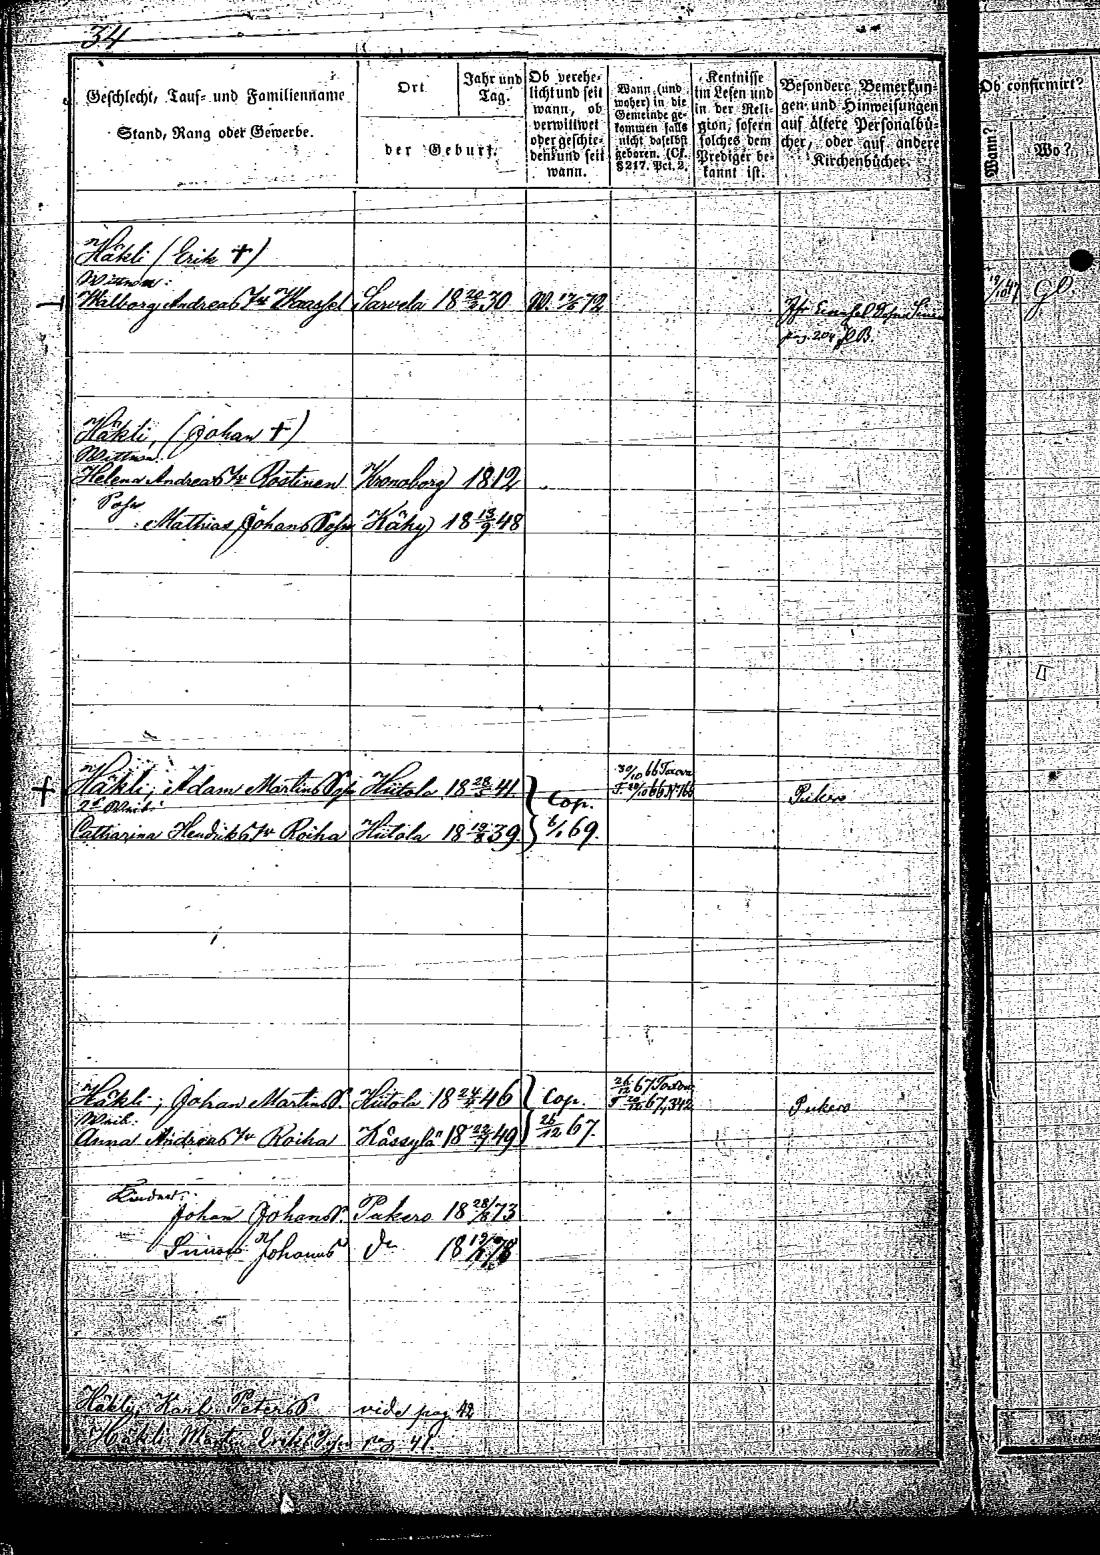 34
Geschlecht, Tauf- und Familienname
Stand, Rang oder Gewerbe.
Ort
Jahr und Tag.
der Geburt.
Ob verehe-
licht und seit
wann, ob
verwittwet
oder geschie-
den und seit
wann.
Wann (und
woher) in die
Gemeinde ge-
kommen falls
nicht daselbst
geboren. (Cf.
§ 217. Pct. 2.
Kentnisse
im Lesen und
in der Reli-
gion, sofern
solches dem
Prediger be-
kannt ist.
Besondere Bemerkun-
gen und Hinweisungen
auf ältere Personalbü-
cher, oder auf andere
Kirchenbücher.
Ob confirmirt?
Wann?
Wo?
Häkli (Erik †)
Wittwe:
Walborg Andreas Tr Sarvela 18 30 W. 72
pag. 204
47 gl.
Häkli, (Johan †)
Wittwe:
Helena Andreas Tr Rostinen Kronoborg 1812
Sohn
Mathias Johans Sohn Käky 18 13/9 48
† Häkli, Adam Martins Sohn Hiitola 18 28/3 41 Cop. 30/10 66 Pukero
2te Weib:
Catharina Hendriks Tr Roiha Hiitola 18 19/8 39 6/1 69.
Häkli, Johan Martins S. Hiitola 18 46 Cop. 26/12 67 Pukero
Weib:
Anna Andreas Tr Roiha Kässylä 18 49 26/12 67.
Kinder:
Johan Johans S. Pukero 18 73
Simon Johans do 18 78
Häkli, Karl Peters S vide pag 42
Häkli Martin Eriks Sohn pag 41.